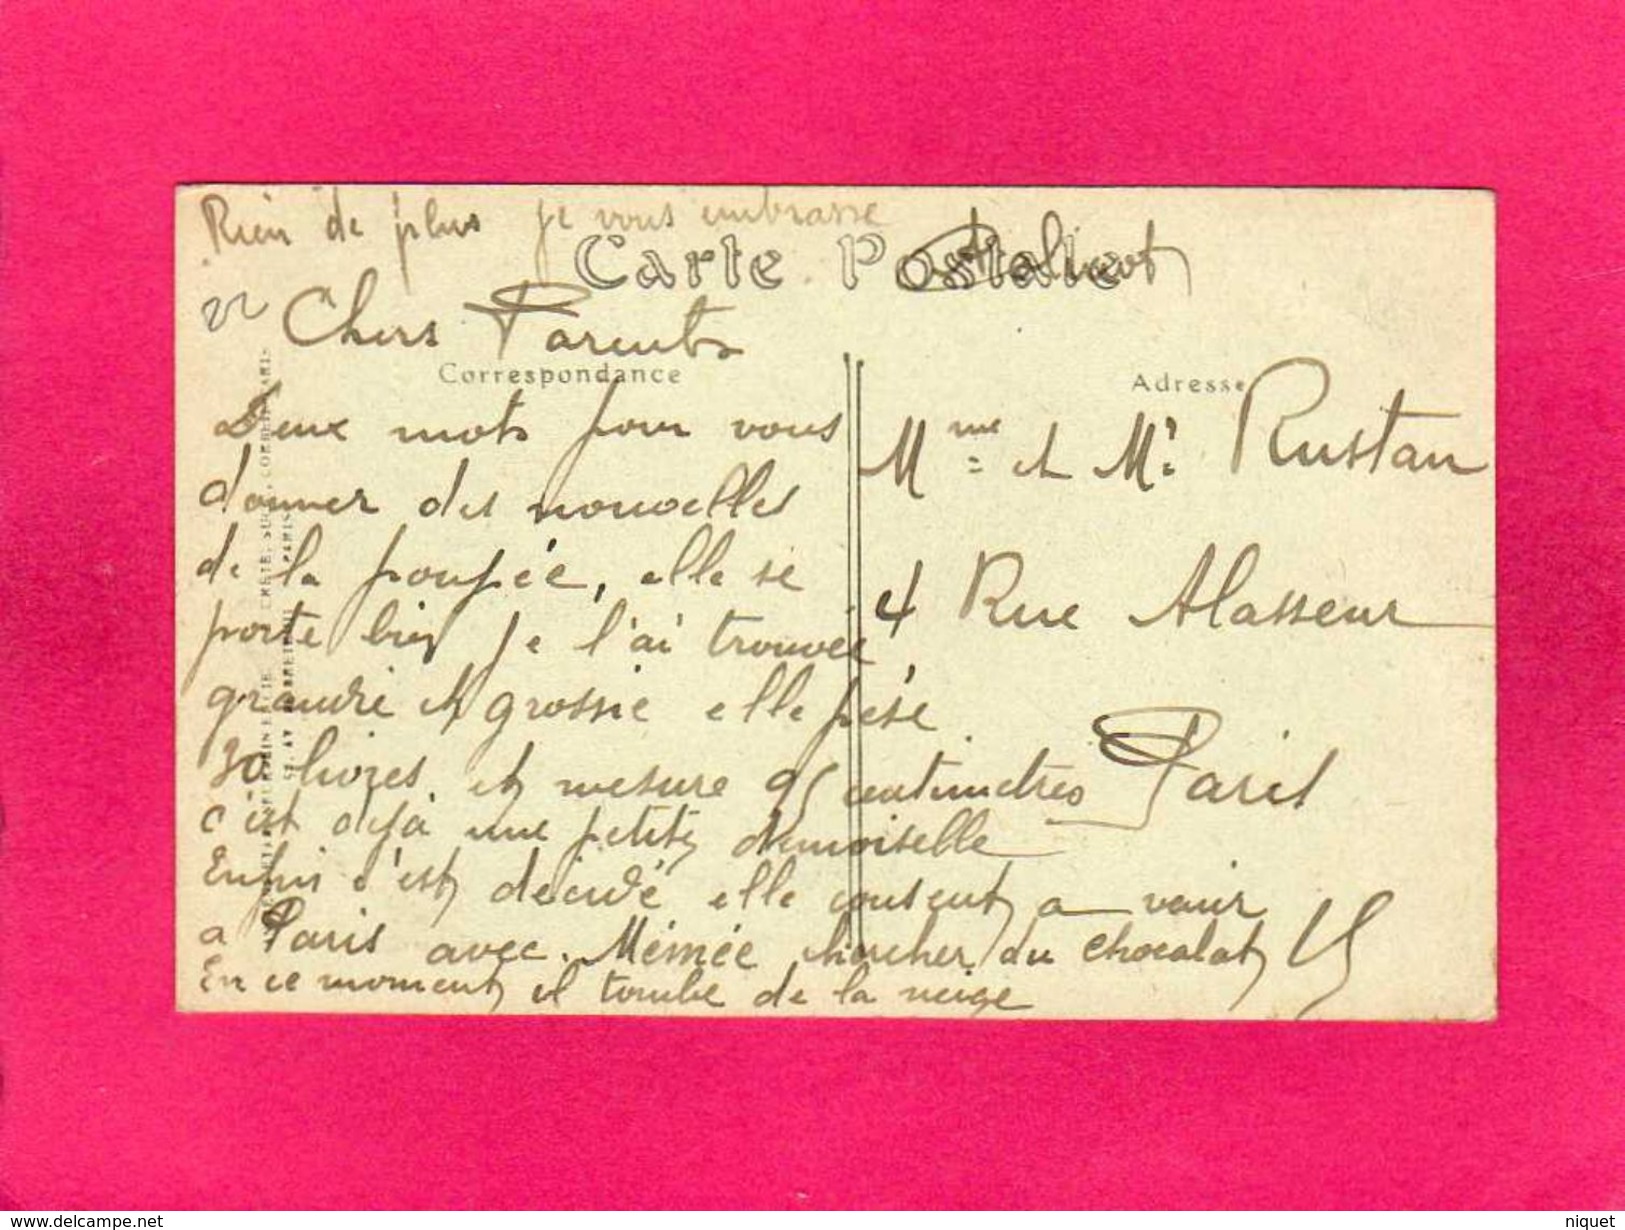 Rien de plus je vous embrasse
Carte Postale
22
Chers Parents
Correspondance
Deux mots pour vous
donner des nouvelles
de la poupée, elle se
porte bien je l'ai trouvée
grandie et grossie elle pèse
30 livres et mesure 95 centimètres
c'est déjà une petite demoiselle
Enfin c'est décidé elle consent a venir
a Paris avec Mémée chercher du chocolat
En ce moment il tombe de la neige
Adresse
Mme et Mr Rustan
4 Rue Alasseur
Paris
delcampe.net
niquet